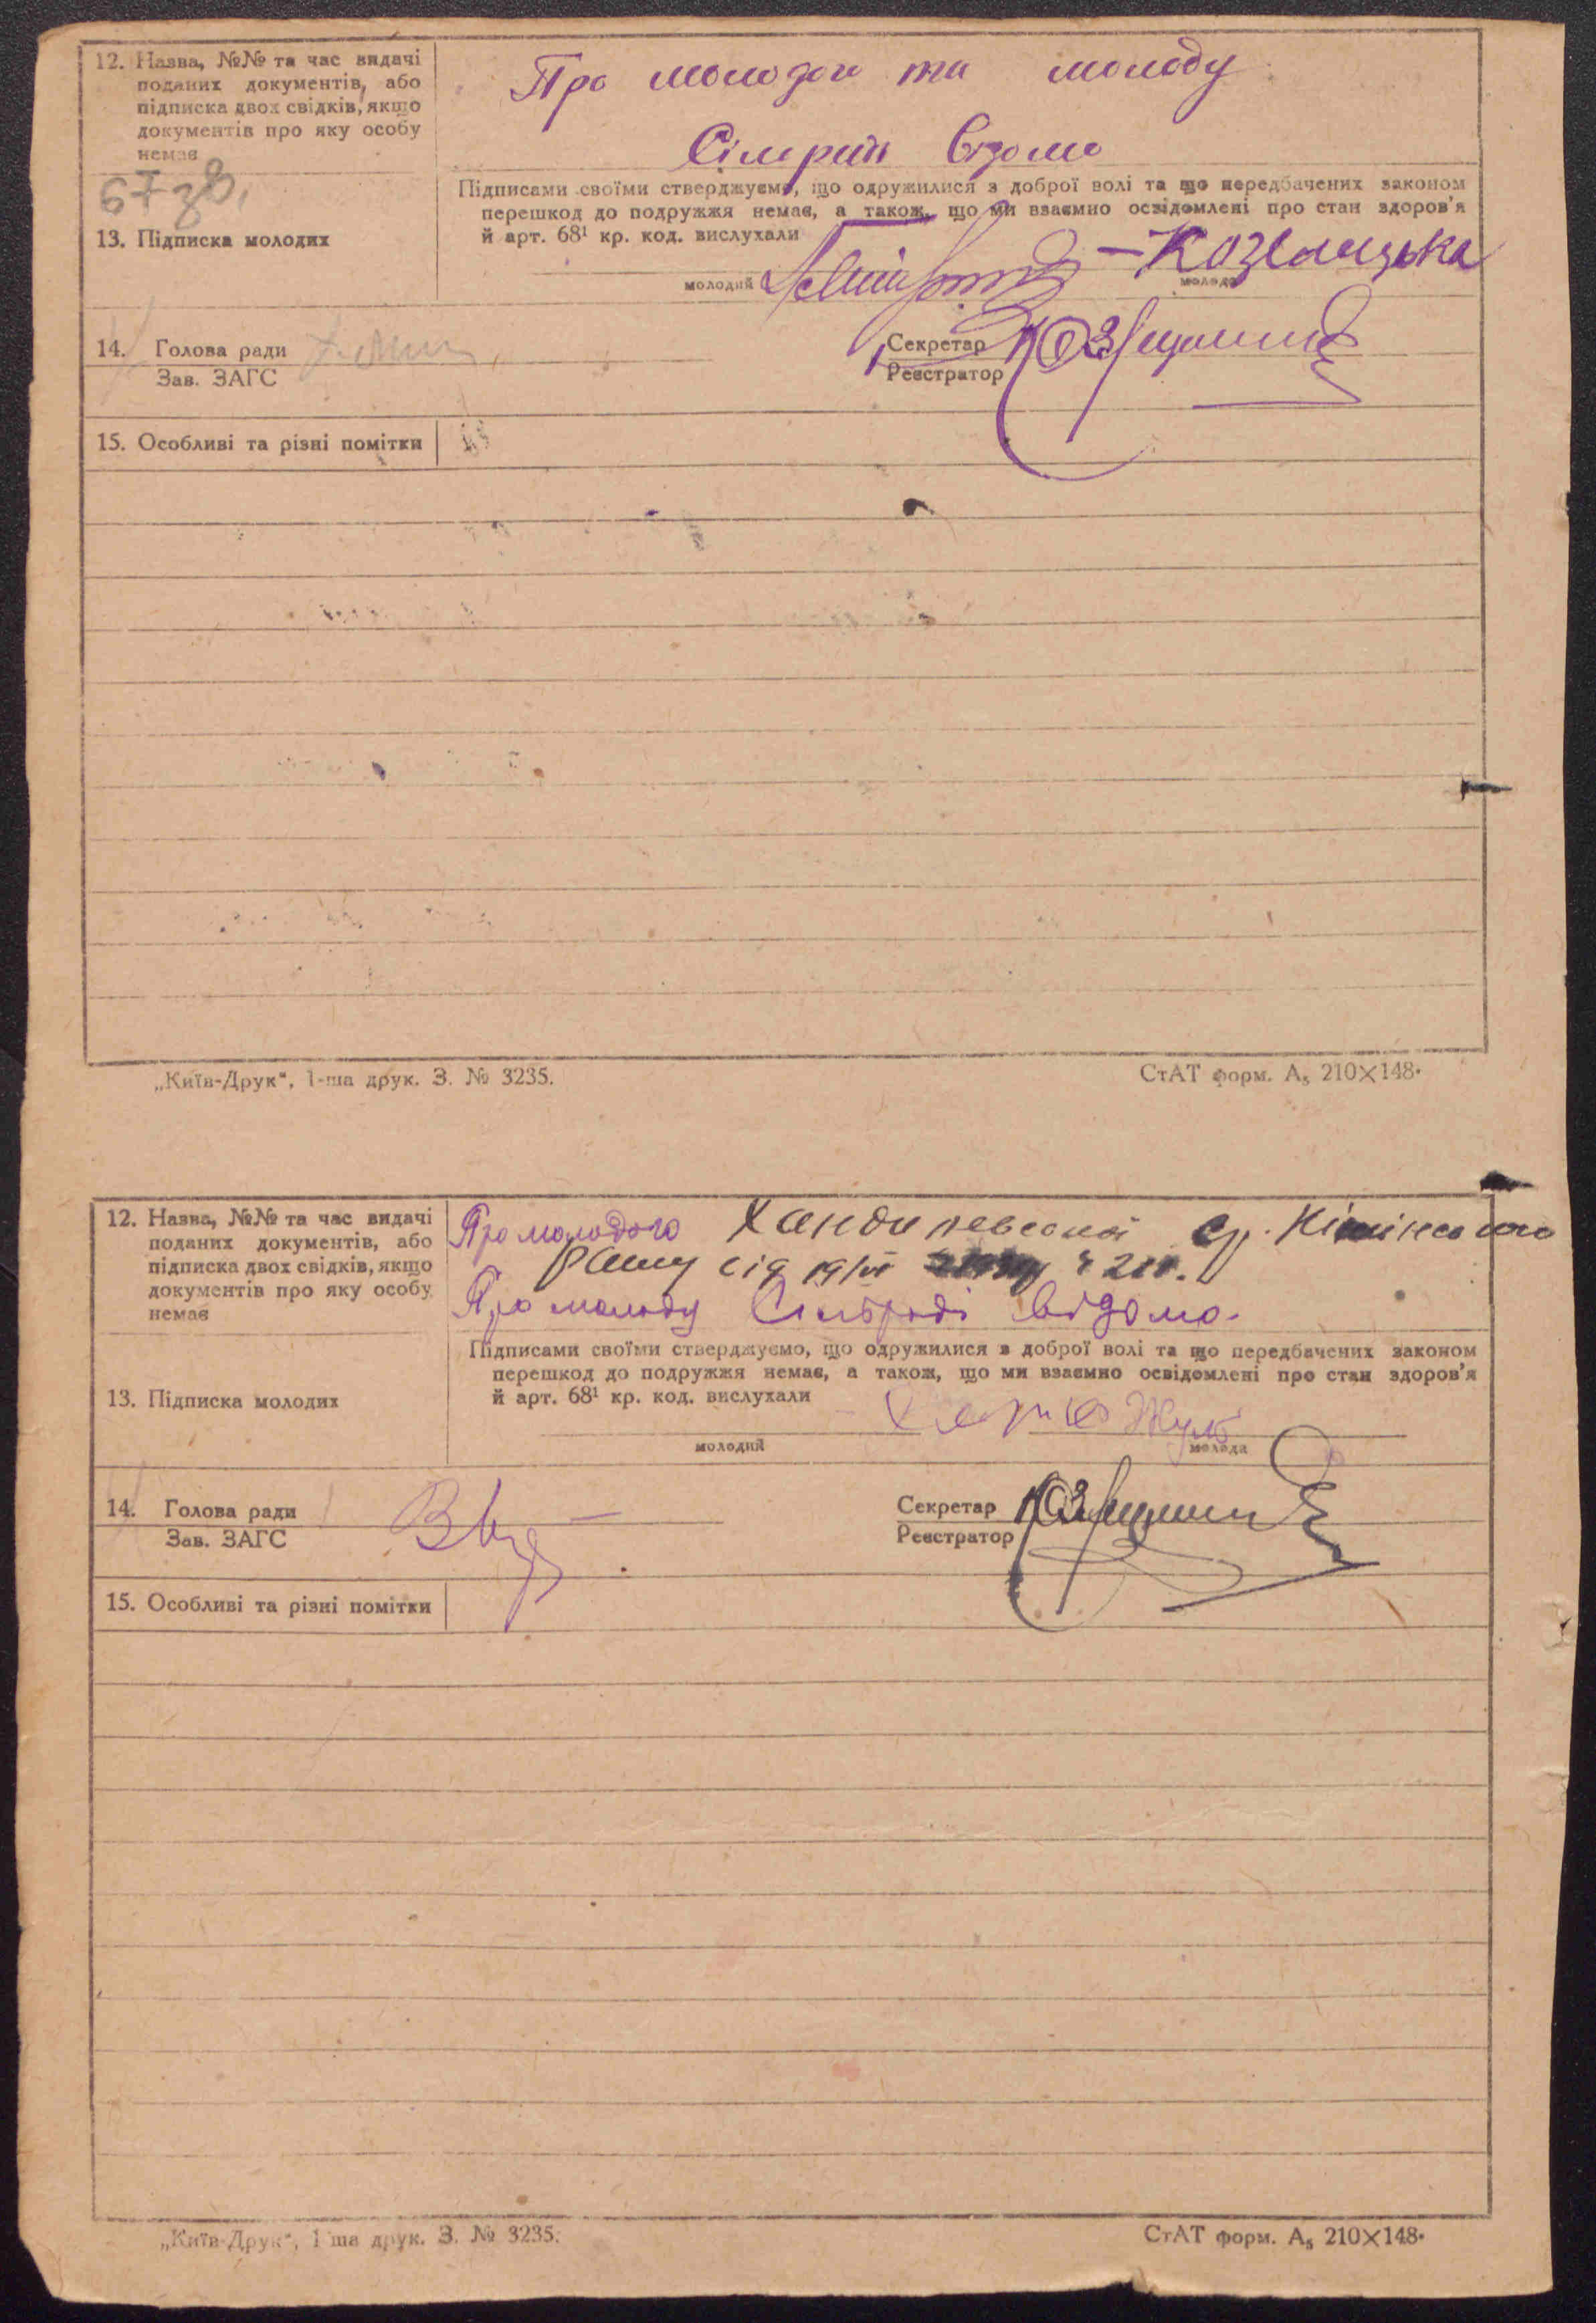 12. Назва, №№ та час видачі
поданих документів, або
підписка двох свідків, якщо
документів про яку особу
немає
Про молодого та молоду
Сільраді відомо
67 зв.
Підписами своїми стверджуємо, що одружилися з доброї волі та що передбачених законом
перешкод до подружжя немає, а також, що ми взаємно освідомлені про стан здоров'я
й арт. 68¹ кр. код. вислухали
13. Підписка молодих
Козелецька
молодий молода
14. Голова ради
Зав. ЗАГС
Секретар
Реєстратор
15. Особливі та різні помітки
„Київ-Друк“, 1-ша друк. З. № 3235.
СтАТ форм. А₅ 210×148·
12. Назва, №№ та час видачі
поданих документів, або
підписка двох свідків, якщо
документів про яку особу
немає
Про молодого
від 19/VI
Про молоду Сільраді відомо.
Підписами своїми стверджуємо, що одружилися з доброї волі та що передбачених законом
перешкод до подружжя немає, а також, що ми взаємно освідомлені про стан здоров'я
й арт. 68¹ кр. код. вислухали
13. Підписка молодих
Жук
молодий молода
14. Голова ради
Зав. ЗАГС
Секретар
Реєстратор
15. Особливі та різні помітки
„Київ-Друк“, 1 ша друк. З. № 3235.
СтАТ форм. А₅ 210×148·